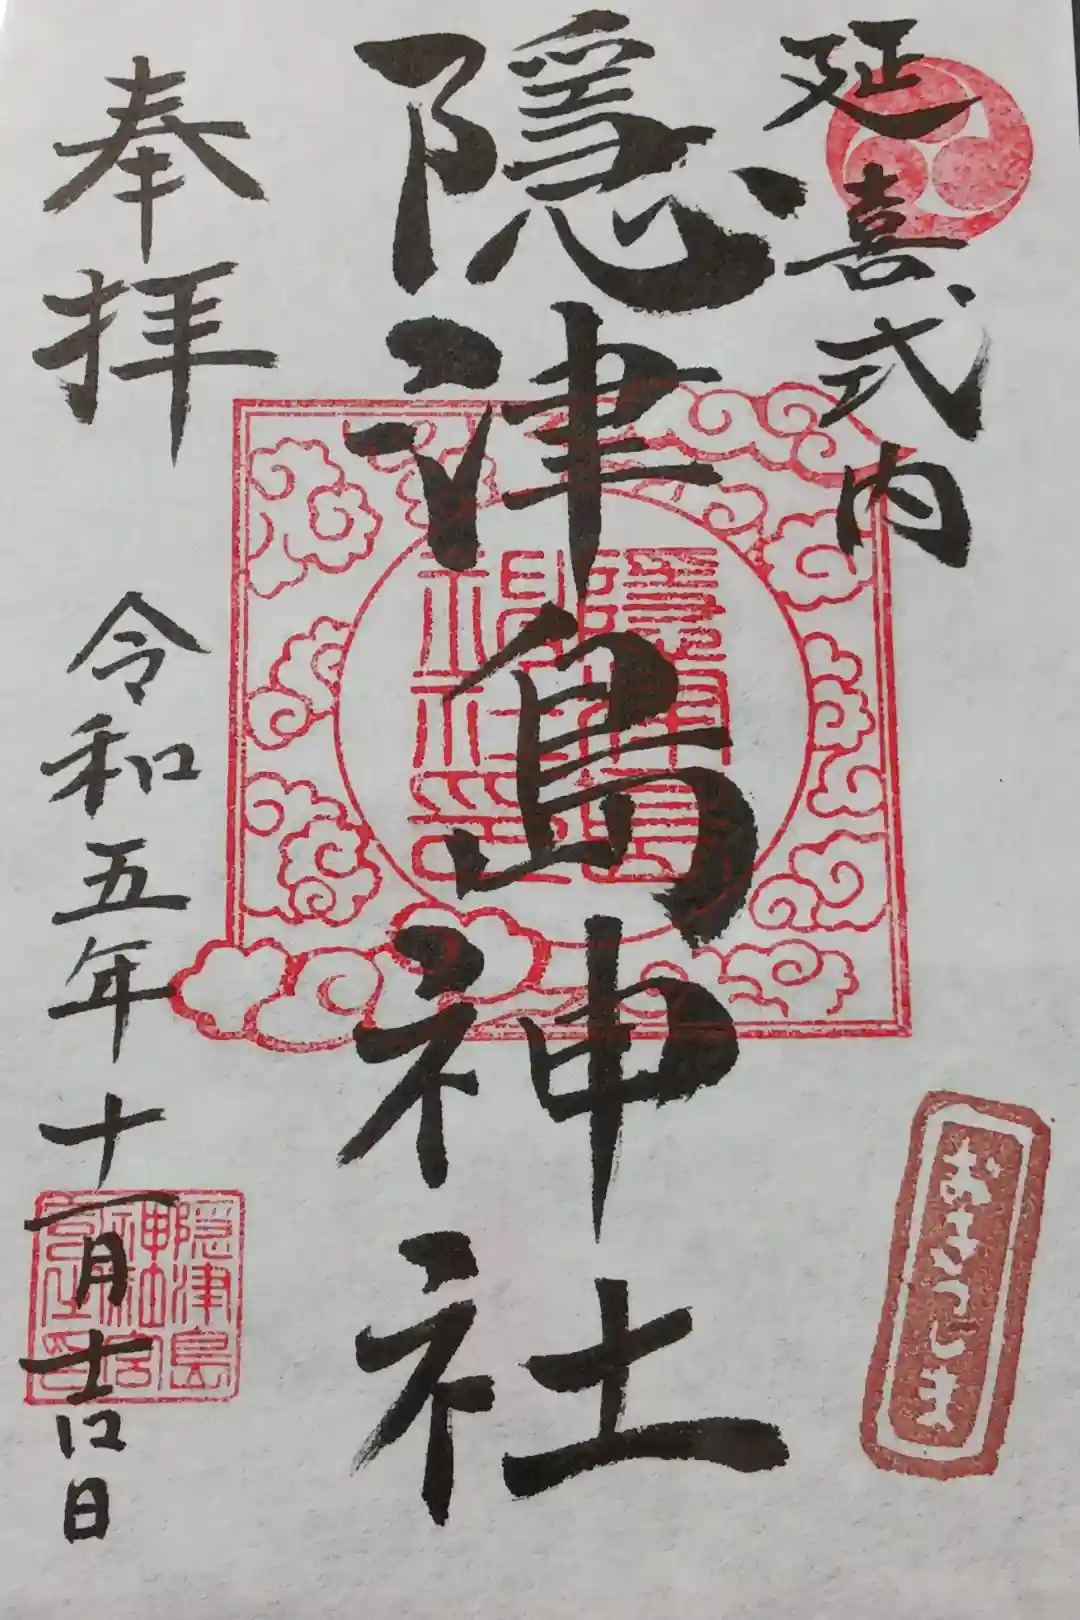 延喜式内
隠津島神社
奉拝
令和五年十一月吉日
隠津島
神社宮
司之印
隠津島
神社印
おきつしま